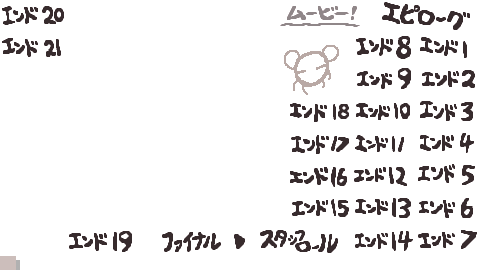 エンド20
エンド21
ムービー!
エピローグ
エンド8 エンド1
エンド9 エンド2
エンド18 エンド10 エンド3
エンド17 エンド11 エンド4
エンド16 エンド12 エンド5
エンド15 エンド13 エンド6
エンド19 ファイナル ▶ スタッフロール エンド14 エンド7